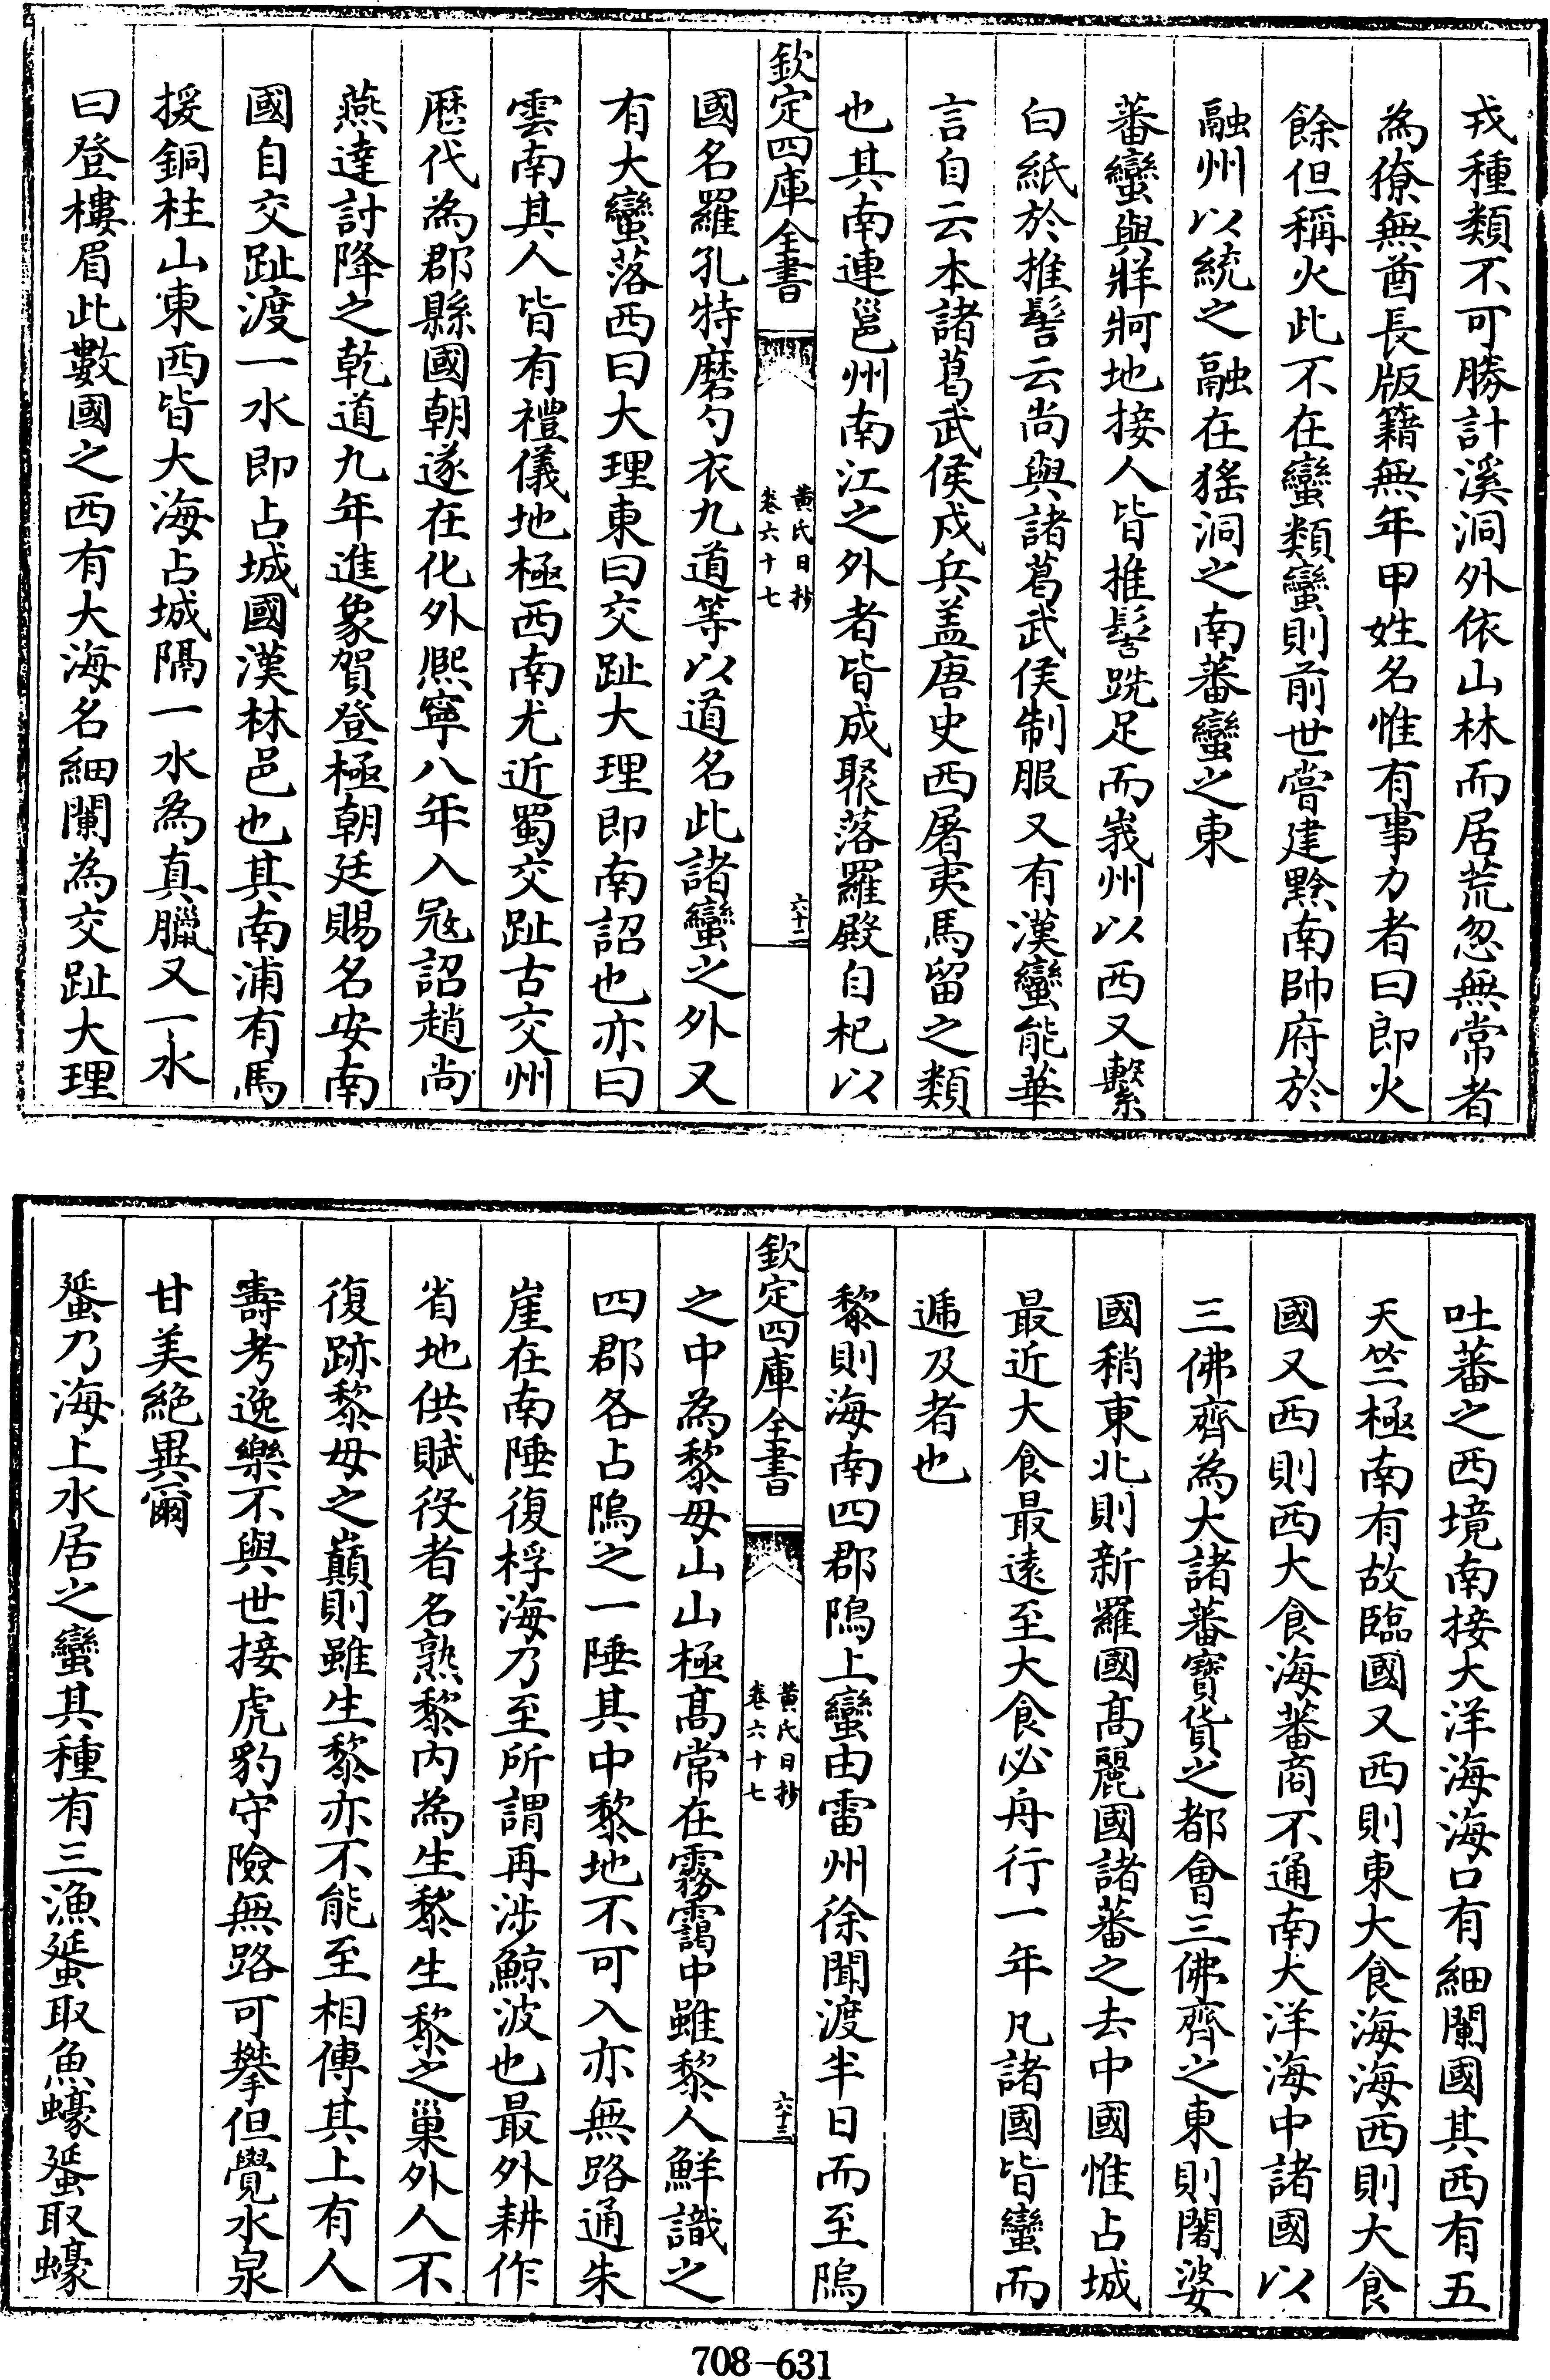 戎種類不可勝計溪洞外依山林而居荒忽無常者
為獠無酋長版籍無年甲姓名惟有事力者曰郎火
餘但稱火此不在蠻類蠻則前世嘗建黔南帥府於
融州以統之融在猺洞之南蕃蠻之東
蕃蠻與牂牁地接人皆推髻跣足而峩州以西又繫
白紙於推髻云尚與諸葛武侯制服又有漢蠻能華
言自云本諸葛武侯戍兵盖唐史西屠夷馬留之類
也其南連邕州南江之外者皆成聚落羅殿自杞以
欽定四庫全書
黃氏日抄
卷六十七
六十二
國名羅孔特磨勺衣九道等以道名此諸蠻之外又
有大蠻落西曰大理東曰交趾大理即南詔也亦曰
雲南其人皆有禮儀地極西南尤近蜀交趾古交州
歴代為郡縣國朝遂在化外熈寧八年入宼詔趙尚
燕達討降之乾道九年進象賀登極朝廷賜名安南
國自交趾渡一水即占城國漢林邑也其南浦有馬
援銅柱山東西皆大海占城隔一水為真臘又一水
曰登樓眉此數國之西有大海名細闌為交趾大理
吐蕃之西境南接大洋海海口有細闌國其西有五
天竺極南有故臨國又西則東大食海海西則大食
國又西則西大食海蕃商不通南大洋海中諸國以
三佛齊為大諸蕃寳貨之都會三佛齊之東則闍婆
國稍東北則新羅國髙麗國諸蕃之去中國惟占城
最近大食最逺至大食必舟行一年凡諸國皆蠻而
遞及者也
黎則海南四郡隝上蠻由雷州徐聞渡半日而至隝
欽定四庫全書
黃氏日抄
卷六十七
六十三
之中為黎毋山山極髙常在霧靄中雖黎人鮮識之
四郡各占隝之一陲其中黎地不可入亦無路通朱
崖在南陲復桴海乃至所謂再涉鯨波也最外耕作
省地供賦役者名熟黎内為生黎生黎之巢外人不
復跡黎毋之巔則雖生黎亦不能至相傳其上有人
壽考逸樂不與世接虎豹守險無路可攀但覺水泉
甘美絶異爾
蜑乃海上水居之蠻其種有三漁蜑取魚蠔蜑取蠔
708-631